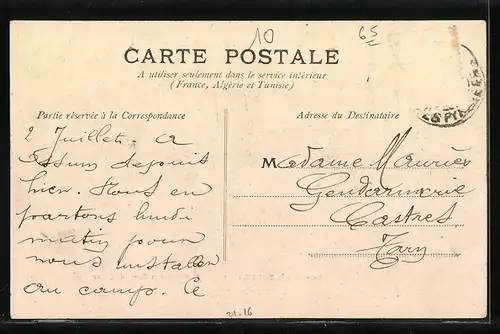 10
65
CARTE POSTALE
A utiliser seulement dans le service intérieur
(France, Algérie et Tunisie)
Partie réservée à la Correspondance
Adresse du Destinataire
2 Juillet. A
depuis
hier. Nous en
partons lundi
matin pour
nous installer
au camp. Ce
Madame Mauriès
Gendarmerie
Castres
Tarn
21-16